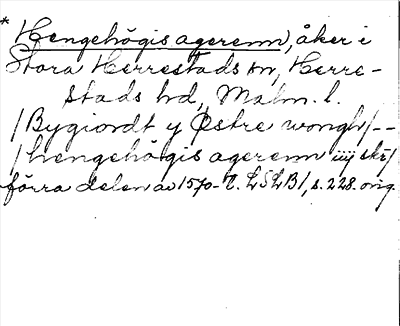 * Hengehögis agerenn, åker i
Stora Herrestads sn, Herre-
stads hd, Malm. l.
/Bygiordt y Østre wongh/--
/hengehögis agerenn iiij skr/
förra delen av 1570-t. LSLB1, s. 228. orig.